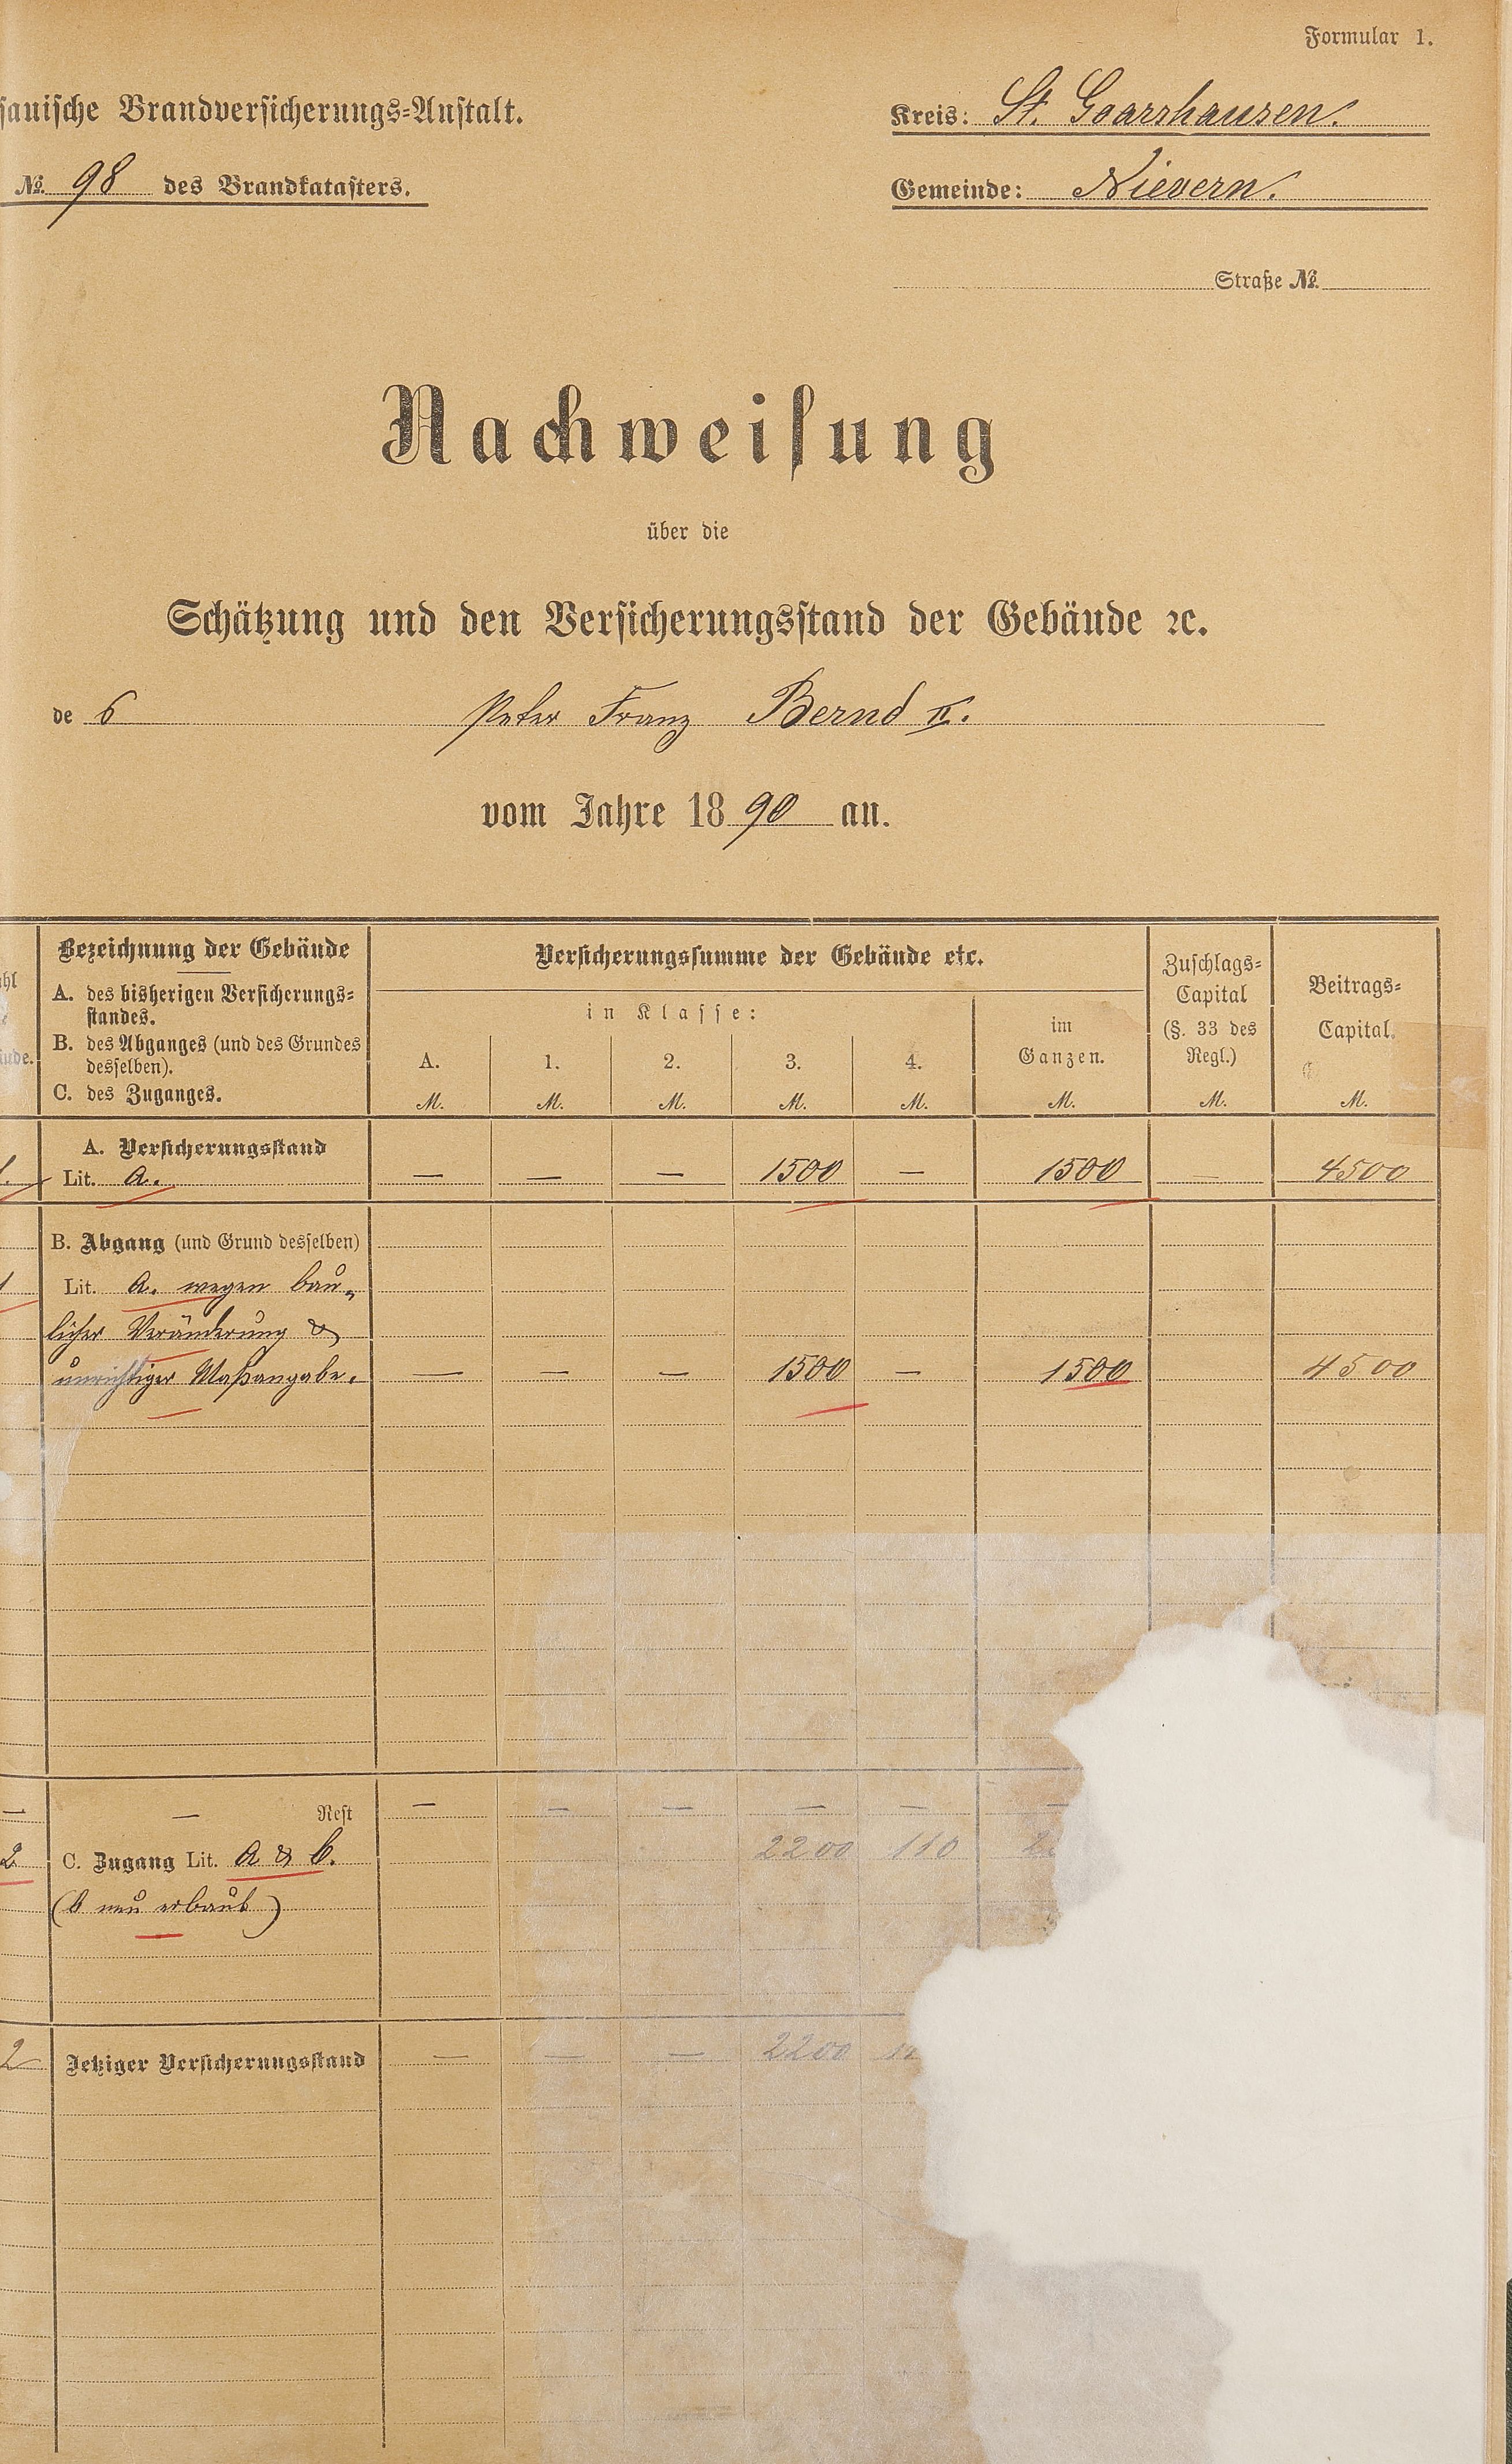 Formular 1.
sauische Brandversicherungs-Anstalt.
Kreis: St. Goarshausen.
№ 98 des Brandkatasters.
Gemeinde: Nievern.
Straße №
Nachweisung
über die
Schätzung und den Versicherungsstand der Gebäude ꝛc.
de s Peter Franz Bernd II.
vom Jahre 1890 an.
Bezeichnung der Gebäude
A. des bisherigen Versicherungs-
standes.
B. des Abganges (und des Grundes
desselben).
C. des Zuganges.
Versicherungssumme der Gebäude etc.
in Klasse:
A. 1. 2. 3. 4.
im
Ganzen.
Zuschlags-
Capital
(§. 33 des
Regl.)
Beitrags-
Capital.
M. M. M. M. M. M. M. M.
A. Versicherungsstand
1. Lit. a. — — — 1500 — 1500 — 4500
B. Abgang (und Grund desselben)
1 Lit. a. wegen bau-
licher Veränderung &
unrichtiger Maßangabe. — — — 1500 — 1500 4500
— — Rest — — — — — —
2 C. Zugang Lit. a & b. 2200 110
(b neu erbaut)
2 Jetziger Versicherungsstand — — — 2200